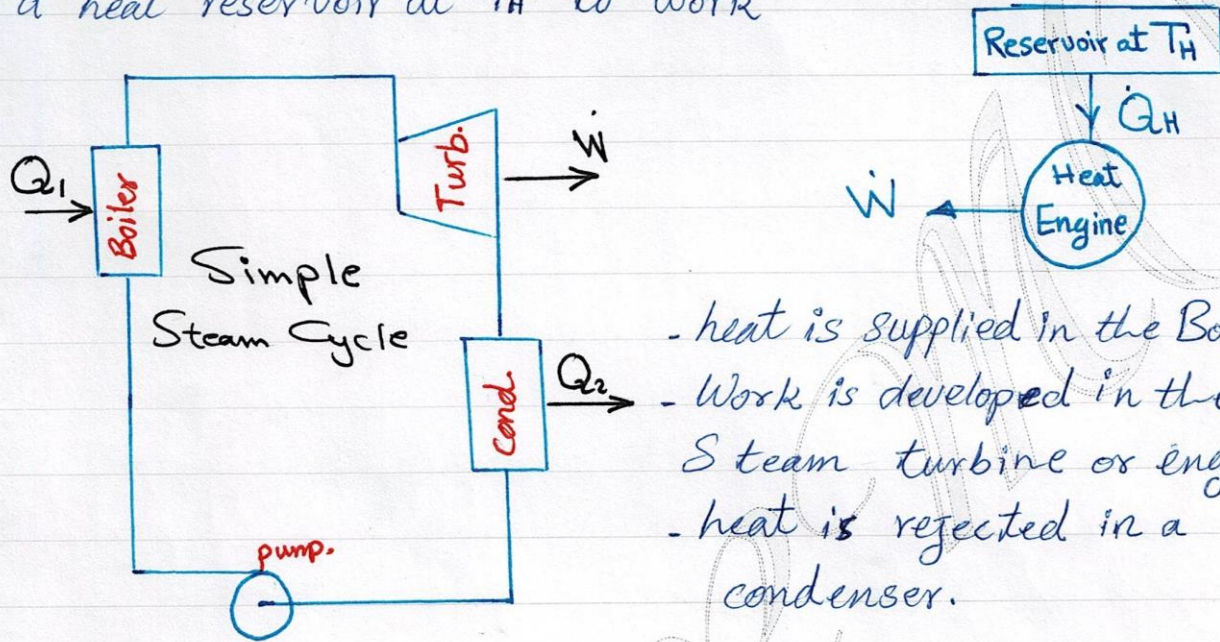 a heat reservoir at TH to work
Reservoir at TH
Q̇H
Heat
Engine
Ẇ
Q1
Boiler
Turb.
Ẇ
Simple
Steam Cycle
Cond.
Q2
pump.
- heat is supplied in the Bo
- Work is developed in the
Steam turbine or eng
- heat is rejected in a
condenser.